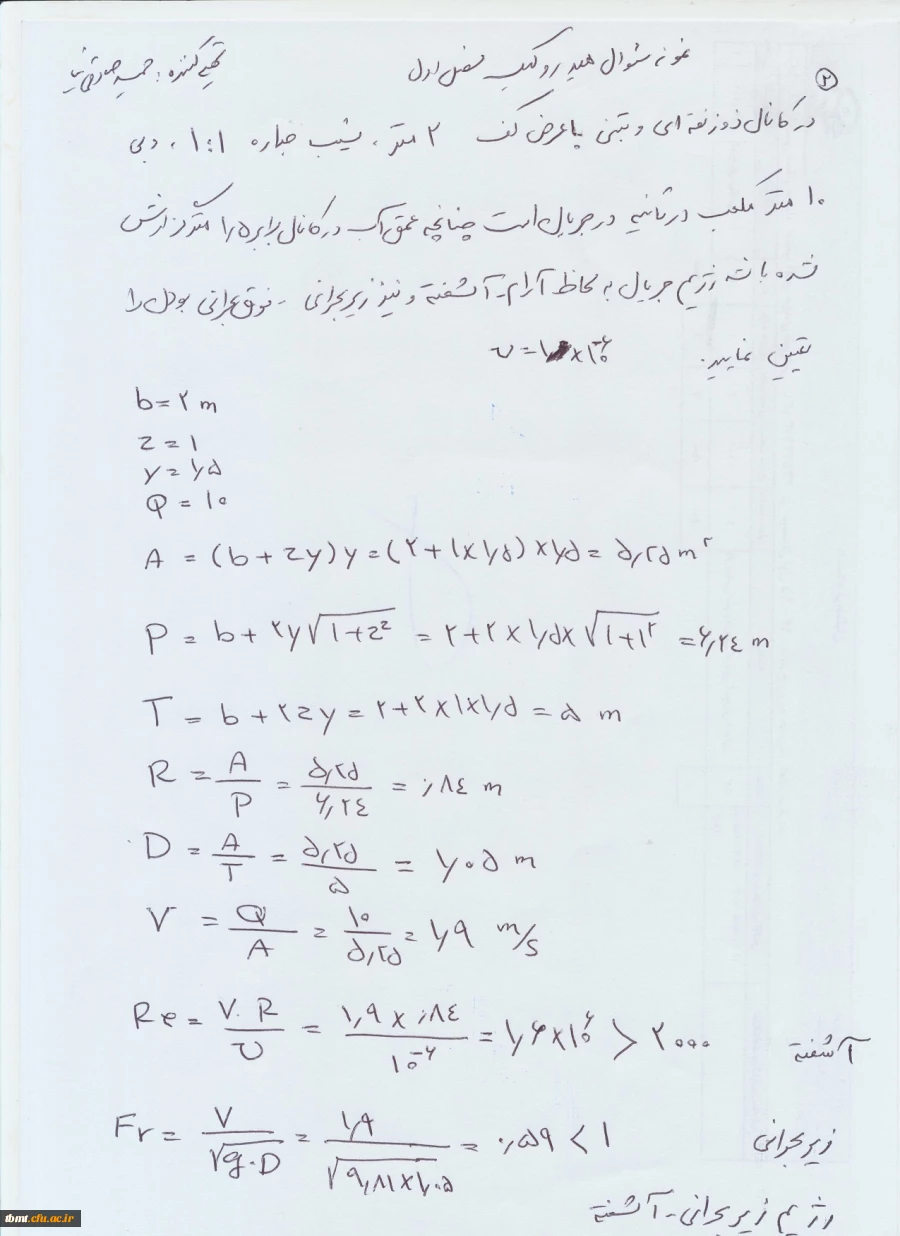 نمونه سئوال هیدرولیک فصل اول تهیه کننده:
۲
در کانال ذوزنقه ای و بتنی با عرض کف ۲ متر، شیب کناره ۱:۱، دبی
۱۰ متر مکعب در ثانیه در جریان است چنانچه عمق آب در کانال برابر ۱٫۵ متر گزارش
شده باشد رژیم جریان به لحاظ آرام-آشفته و نیز زیر بحرانی - فوق بحرانی بودن را
تعیین نمایید. υ=۱×۱۰⁻⁶
b=۲ m
z=۱
y=۱٫۵
Q=۱۰
A = (b+zy)y = (۲+۱×۱٫۵)×۱٫۵ = ۵٫۲۵ m²
P = b+۲y√(1+z²) = ۲+۲×۱٫۵×√(۱+۱²) = ۶٫۲٤ m
T = b+۲zy = ۲+۲×۱×۱٫۵ = ۵ m
R = A/P = ۵٫۲۵/۶٫۲٤ = ٫۸٤ m
D = A/T = ۵٫۲۵/۵ = ۱٫۰۵ m
V = Q/A = ۱۰/۵٫۲۵ = ۱٫۹ m/s
Re = V.R/υ = ۱٫۹×٫۸٤/۱۰⁻⁶ = ۱٫۶×۱۰⁶ > ۲۰۰۰ آشفته
Fr = V/√(g.D) = ۱٫۹/√(۹٫۸۱×۱٫۰۵) = ٫۵۹ < ۱ زیر بحرانی
رژیم زیر بحرانی - آشفته
tbmt.cfu.ac.ir